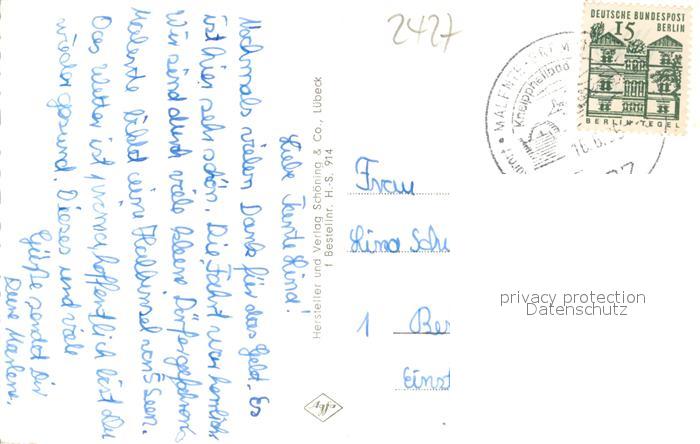 2427
DEUTSCHE BUNDESPOST
BERLIN
15
BERLIN-TEGEL
MALENTE-GREM
Kneippheilbad
16.8.65
Liebe Tante Lina!
Nochmals vielen Dank für das Geld. Es
ist hier sehr schön. Die Fahrt war herrlich
Wir sind durch viele kleine Dörfer gefahren
Malente bildet eine Halbinsel von 5 Seen.
Das Wetter ist prima, hoffentlich bist du
wieder gesund. Dieses und viele
Grüße sendet Dir
Deine Marlene.
Hersteller und Verlag Schöning & Co., Lübeck
f Bestellnr. H.-S. 914
Frau
Lina Schu
1 Ber
Einst
privacy protection
Datenschutz